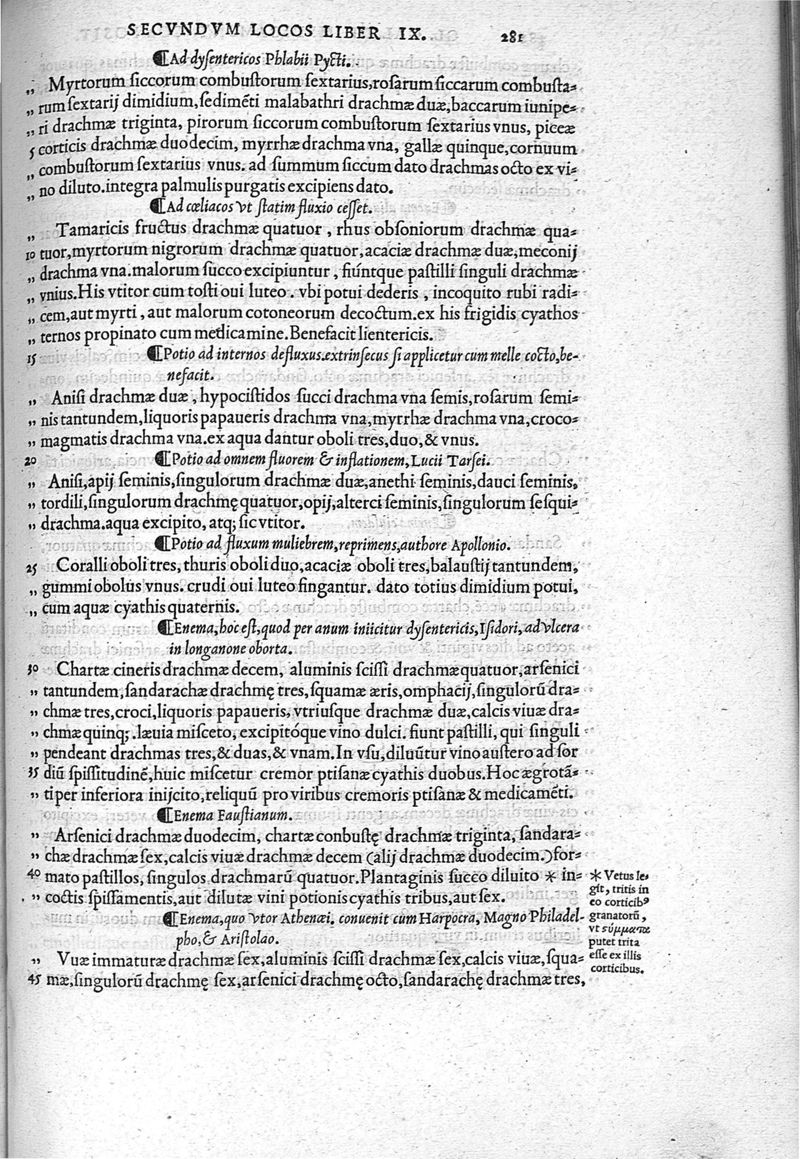 SECVNDVM LOCOS LIBER IX. 281
¶Ad dyſentericos Phlabii Pycti.
„ Myrtorum ſiccorum combuſtorum ſextarius,roſarum ſiccarum combuſta=
„ rum ſextarij dimidium,ſedimēti malabathri drachmæ duæ,baccarum iunipe=
„ ri drachmæ triginta, pirorum ſiccorum combuſtorum ſextarius vnus, piceæ
5 corticis drachmæ duodecim, myrrhæ drachma vna, gallæ quinque,cornuum
„ combuſtorum ſextarius vnus. ad ſummum ſiccum dato drachmas octo ex vi=
„ no diluto.integra palmulis purgatis excipiens dato.
¶Ad cœliacos vt ſtatim fluxio ceſſet.
„ Tamaricis fructus drachmæ quatuor , rhus obſoniorum drachmæ qua=
10 tuor,myrtorum nigrorum drachmæ quatuor,acaciæ drachmæ duæ,meconij
„ drachma vna.malorum ſucco excipiuntur , fiúntque paſtilli ſinguli drachmæ
„ vnius.His vtitor cum toſti oui luteo. vbi potui dederis , incoquito rubi radi=
„ cem,aut myrti , aut malorum cotoneorum decoctum.ex his frigidis cyathos
„ ternos propinato cum medicamine.Benefacit lientericis.
15 ¶Potio ad internos defluxus.extrinſecus ſi applicetur cum melle cocto,be-
nefacit.
„ Aniſi drachmæ duæ , hypociſtidos ſucci drachma vna ſemis,roſarum ſemi=
„ nis tantundem,liquoris papaueris drachma vna,myrrhæ drachma vna,croco=
„ magmatis drachma vna.ex aqua dantur oboli tres,duo,& vnus.
20 ¶Potio ad omnem fluorem & inflationem,Lucii Tarſei.
„ Aniſi,apij ſeminis,ſingulorum drachmæ duæ,anethi ſeminis,dauci ſeminis,
„ tordili,ſingulorum drachmę quatuor,opij,alterci ſeminis,ſingulorum ſeſqui=
„ drachma.aqua excipito, atq; ſic vtitor.
¶Potio ad fluxum muliebrem,reprimens,authore Apollonio.
25 Coralli oboli tres,thuris oboli duo,acaciæ oboli tres,balauſtij tantundem,
„ gummi obolus vnus. crudi oui luteo fingantur. dato totius dimidium potui,
„ cum aquæ cyathis quaternis.
¶Enema,hoc eſt,quod per anum iniicitur dyſentericis,Iſidori, ad vlcera
in longanone oborta.
30 Chartæ cineris drachmæ decem, aluminis ſciſſi drachmæquatuor,arſenici
„ tantundem,ſandarachæ drachmę tres,ſquamæ æris,omphacij,ſingulorū dra=
„ chmæ tres,croci,liquoris papaueris, vtriuſque drachmæ duæ,calcis viuæ dra=
„ chmæ quinq;.læuia miſceto, excipitóque vino dulci. fiunt paſtilli, qui ſinguli
„ pendeant drachmas tres,& duas,& vnam.In vſu,diluūtur vino auſtero ad ſor
35 diū ſpiſſitudinē,huic miſcetur cremor ptiſanæ cyathis duobus.Hoc ægrotā=
„ ti per inferiora inijcito,reliquū pro viribus cremoris ptiſanæ & medicamēti.
¶Enema Fauſtianum.
„ Arſenici drachmæ duodecim, chartæ conbuſtę drachmæ triginta, ſandara=
„ chæ drachmæ ſex,calcis viuæ drachmæ decem (alij drachmæ duodecim.)for=
40 mato paſtillos, ſingulos drachmarū quatuor.Plantaginis ſucco diluito * in=
„ coctis ſpiſſamentis,aut dilutæ vini potionis cyathis tribus,aut ſex.
¶Enema,quo vtor Athenæi. conuenit cum Harpocra, Magno Philadel-
pho,& Ariſtolao.
„ Vuæ immaturæ drachmæ ſex,aluminis ſciſſi drachmæ ſex,calcis viuæ,ſqua=
45 mæ,ſingulorū drachmę ſex,arſenici drachmę octo,ſandarachę drachmæ tres,
* Vetus le,
git, tritis in
eo corticib⁹
granatorū,
vt σύμματα
putet trita
eſſe ex illis
corticibus.